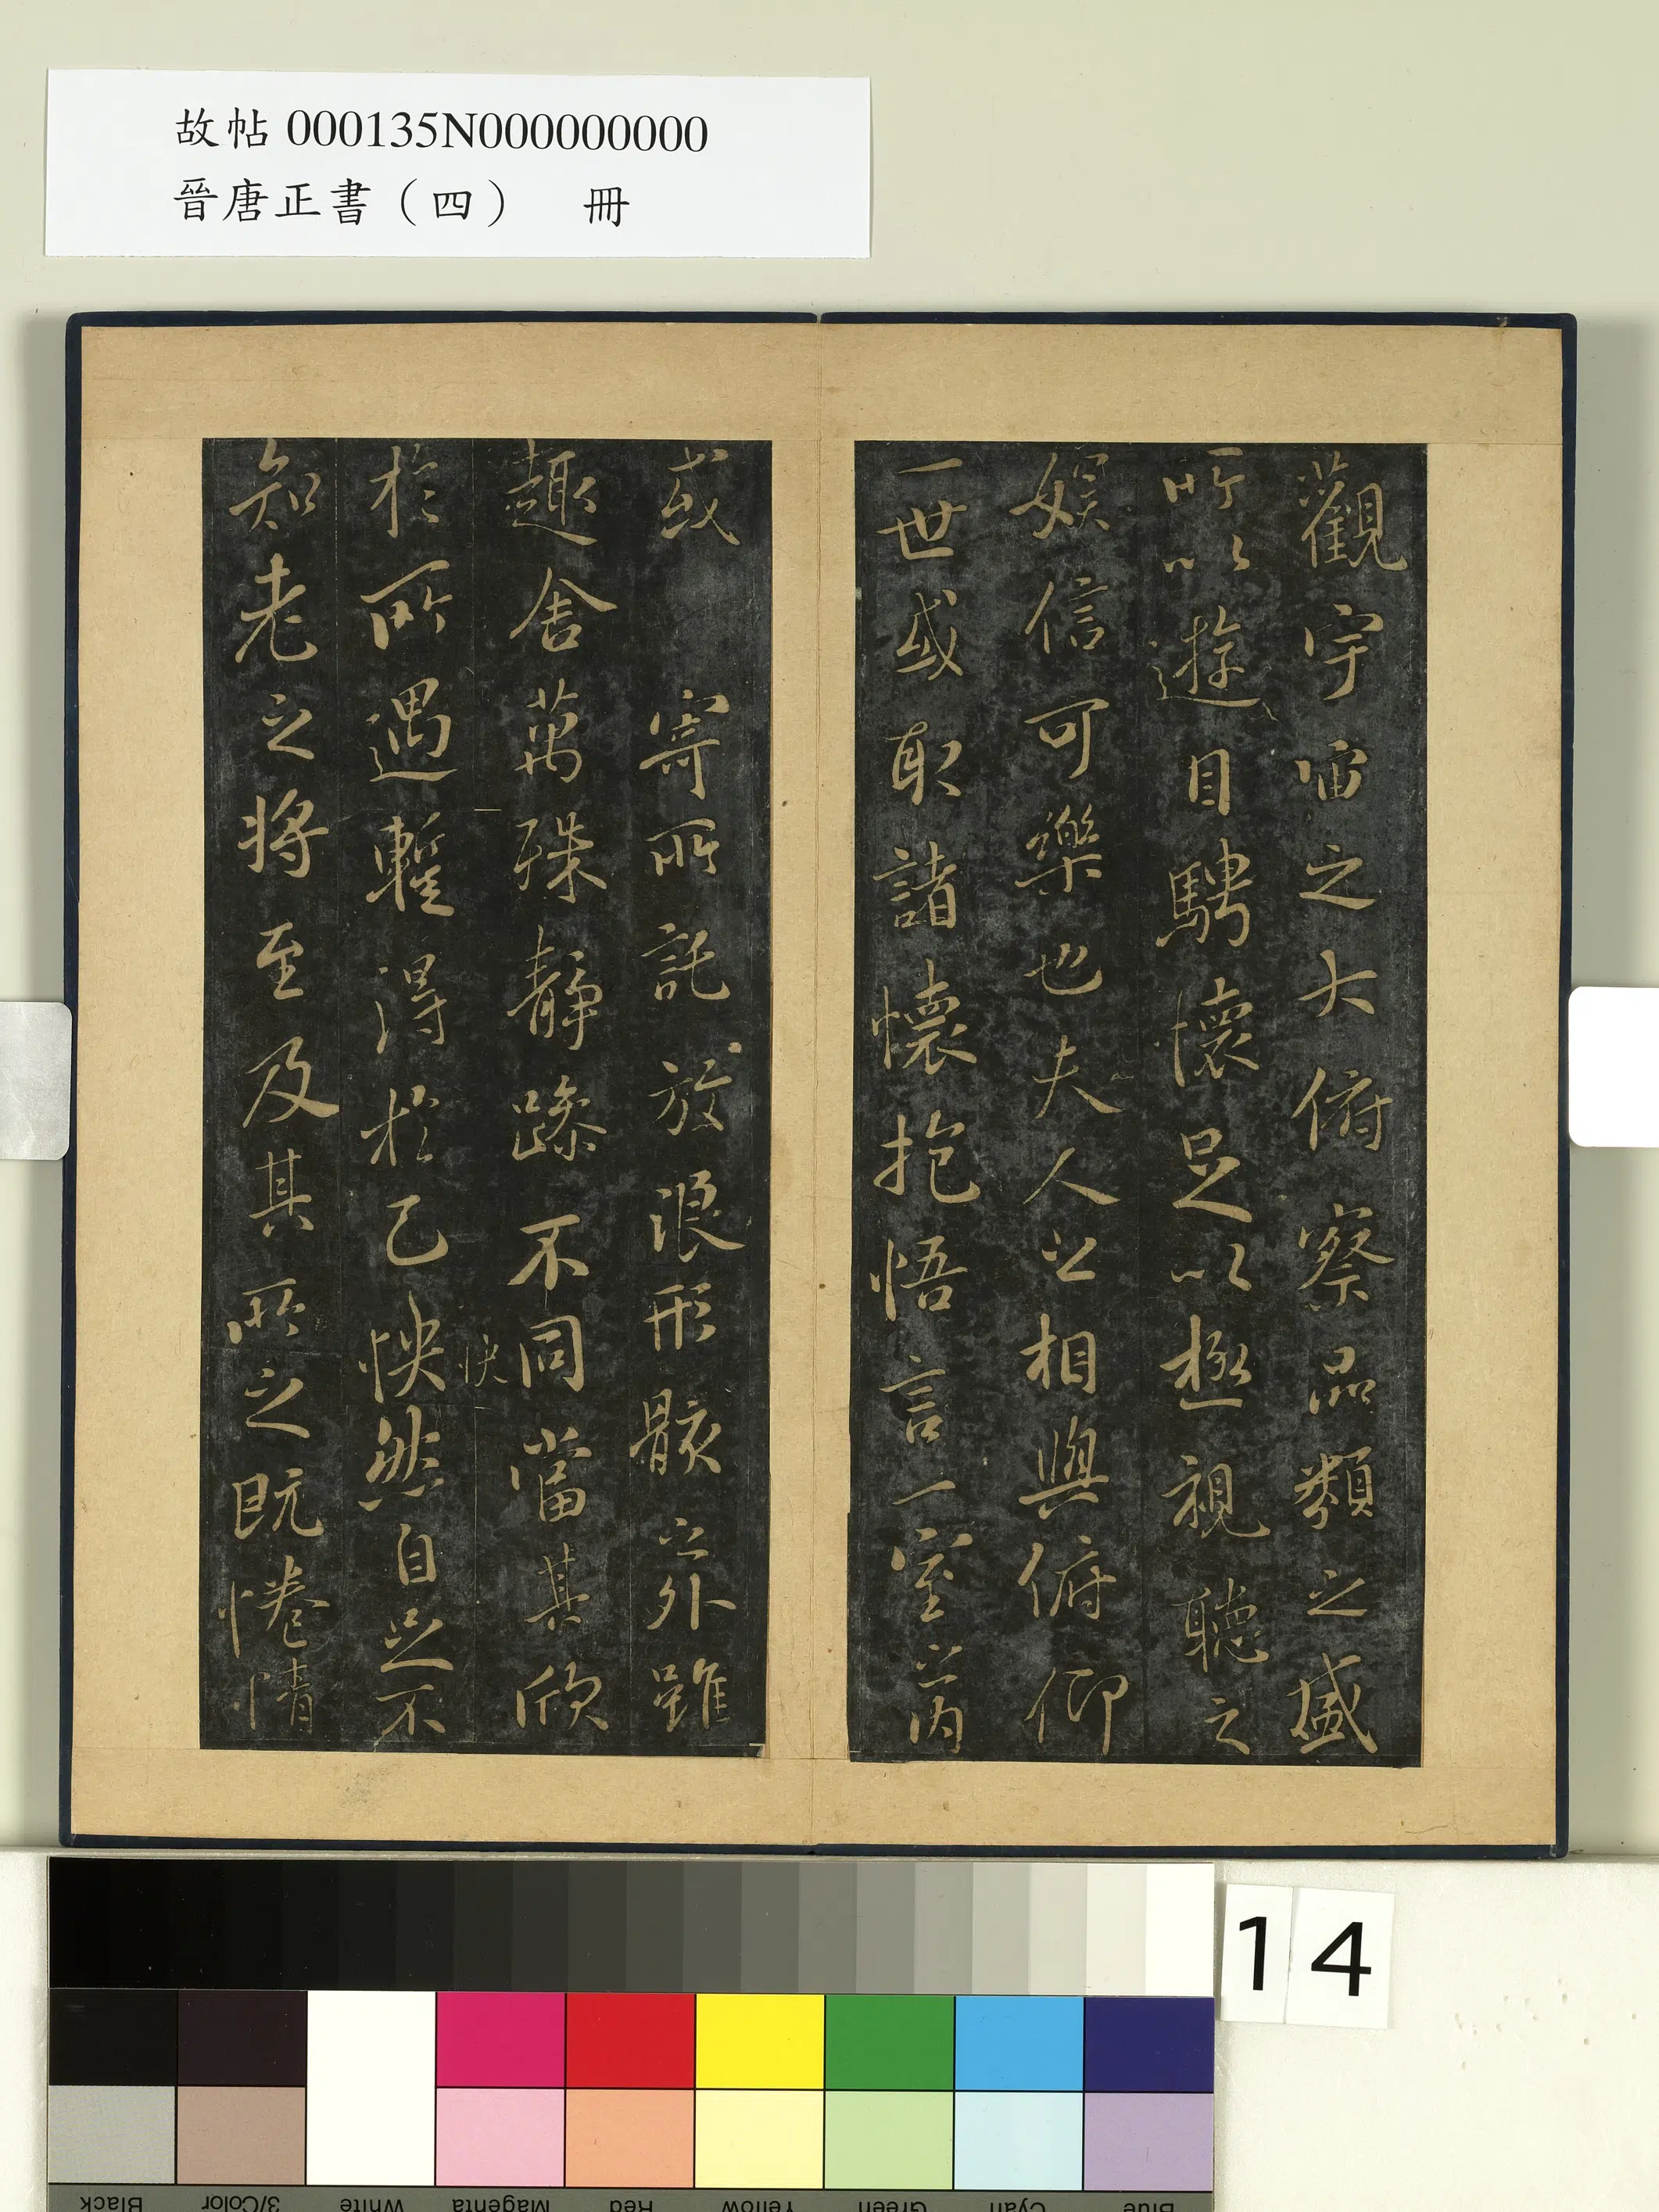 故帖 000135N000000000
晉唐正書（四） 冊
觀宇宙之大俯察品類之盛
所以遊目騁懷足以極視聽之
娛信可樂也夫人之相與俯仰
一世或取諸懷抱悟言一室之內
或寄所託放浪形骸之外雖
趣舍萬殊靜躁不同當其欣
快
於所遇蹔得於己怏然自足不
知老之將至及其所之既惓情
14
Black 3/Color White Magenta Red Yellow Green Cyan Blue